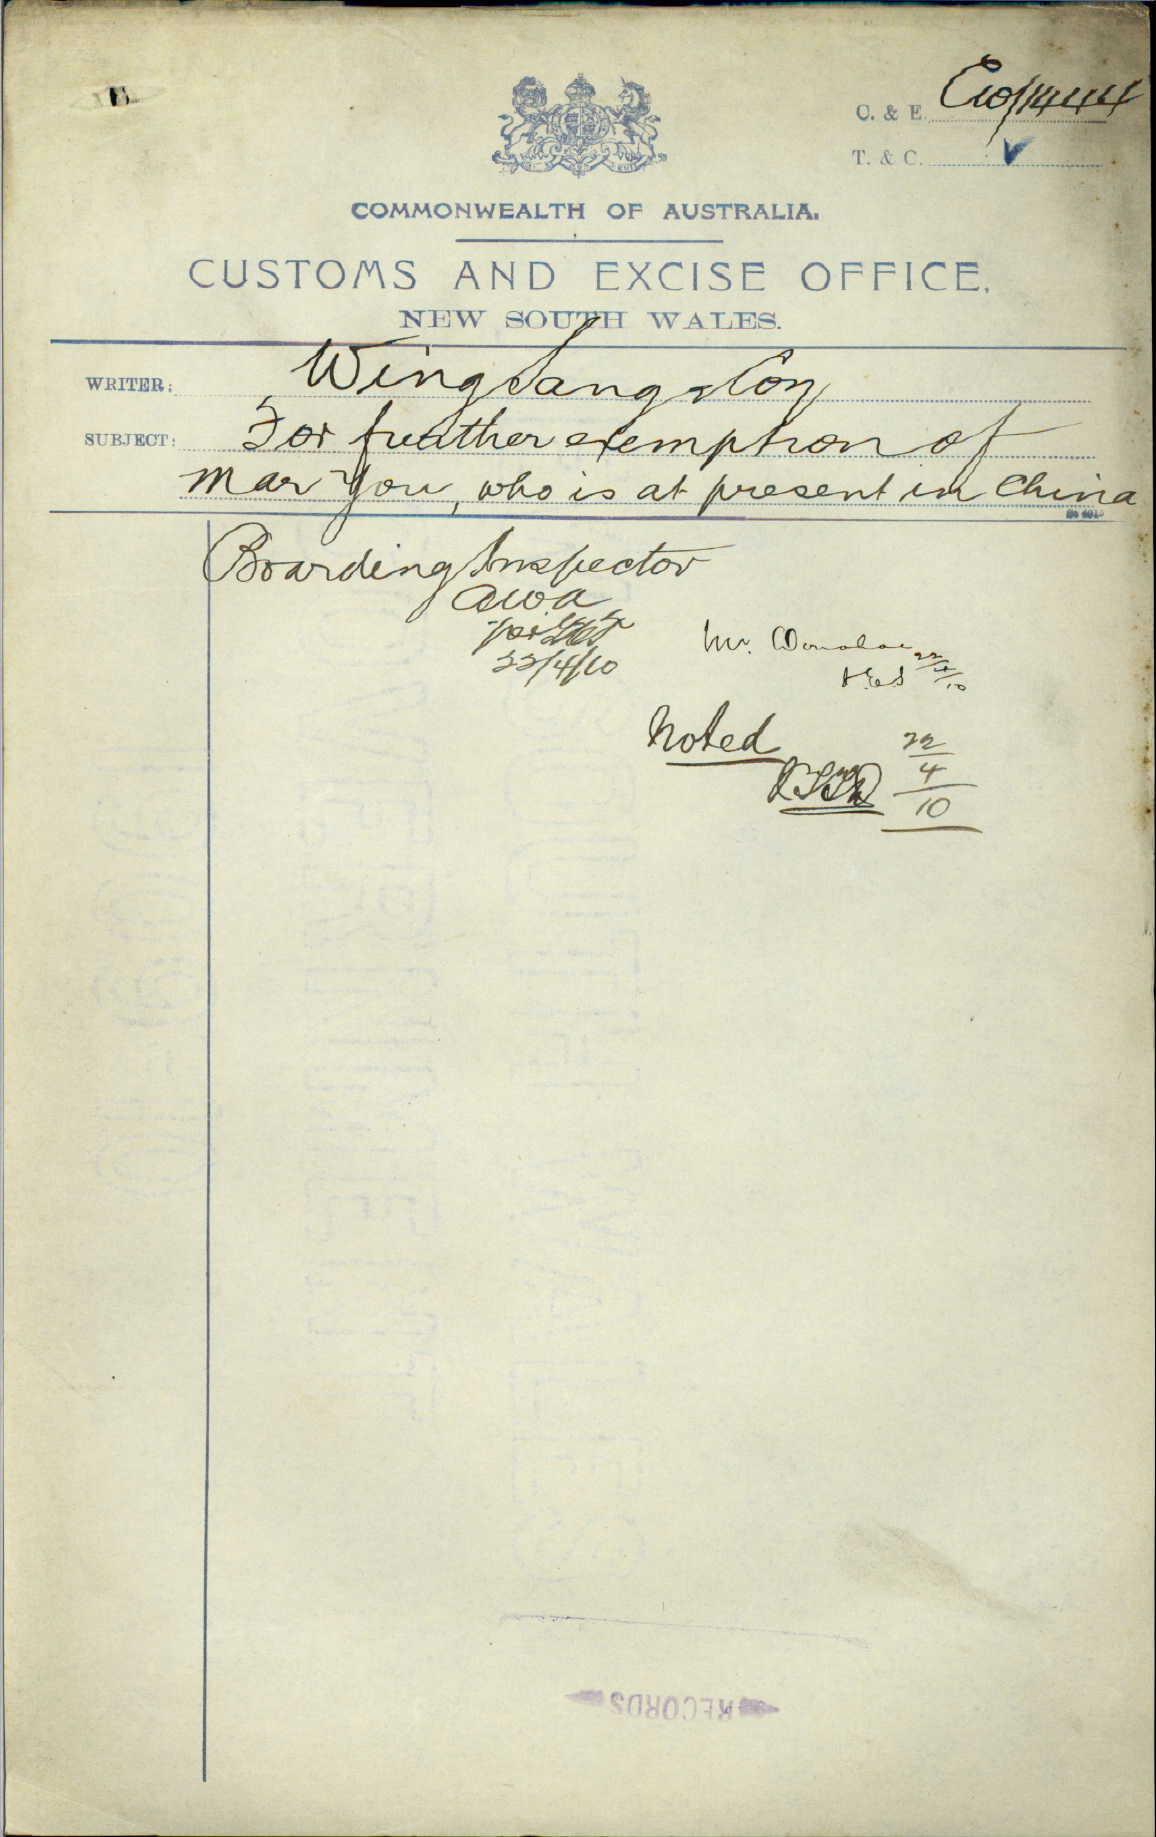 C. & E. C10/14444
T. & C.
COMMONWEALTH OF AUSTRALIA.
CUSTOMS AND EXCISE OFFICE,
NEW SOUTH WALES.
WRITER: Wing Sang & Coy
SUBJECT: For further exemption of
Mar You, who is at present in China
Boarding Inspector
22/4/10
Mr. Donohoe 22/4/10
Noted
22
4
10
RECORDS